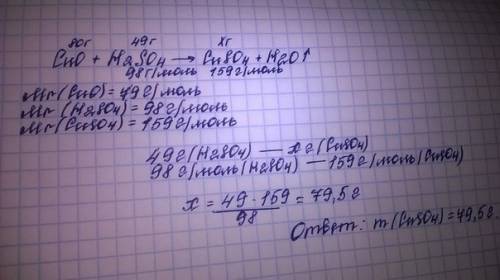 80г 49г xг
CuO + H2SO4 → CuSO4 + H2O↑
98г/моль 159г/моль
Mr(CuO) = 79г/моль
Mr(H2SO4) = 98г/моль
Mr(CuSO4) = 159г/моль
49г(H2SO4) — xг(CuSO4)
98г/моль(H2SO4) — 159г/моль(CuSO4)
x = 49 · 159 / 98 = 79,5г
Ответ: m(CuSO4) = 79,5г.